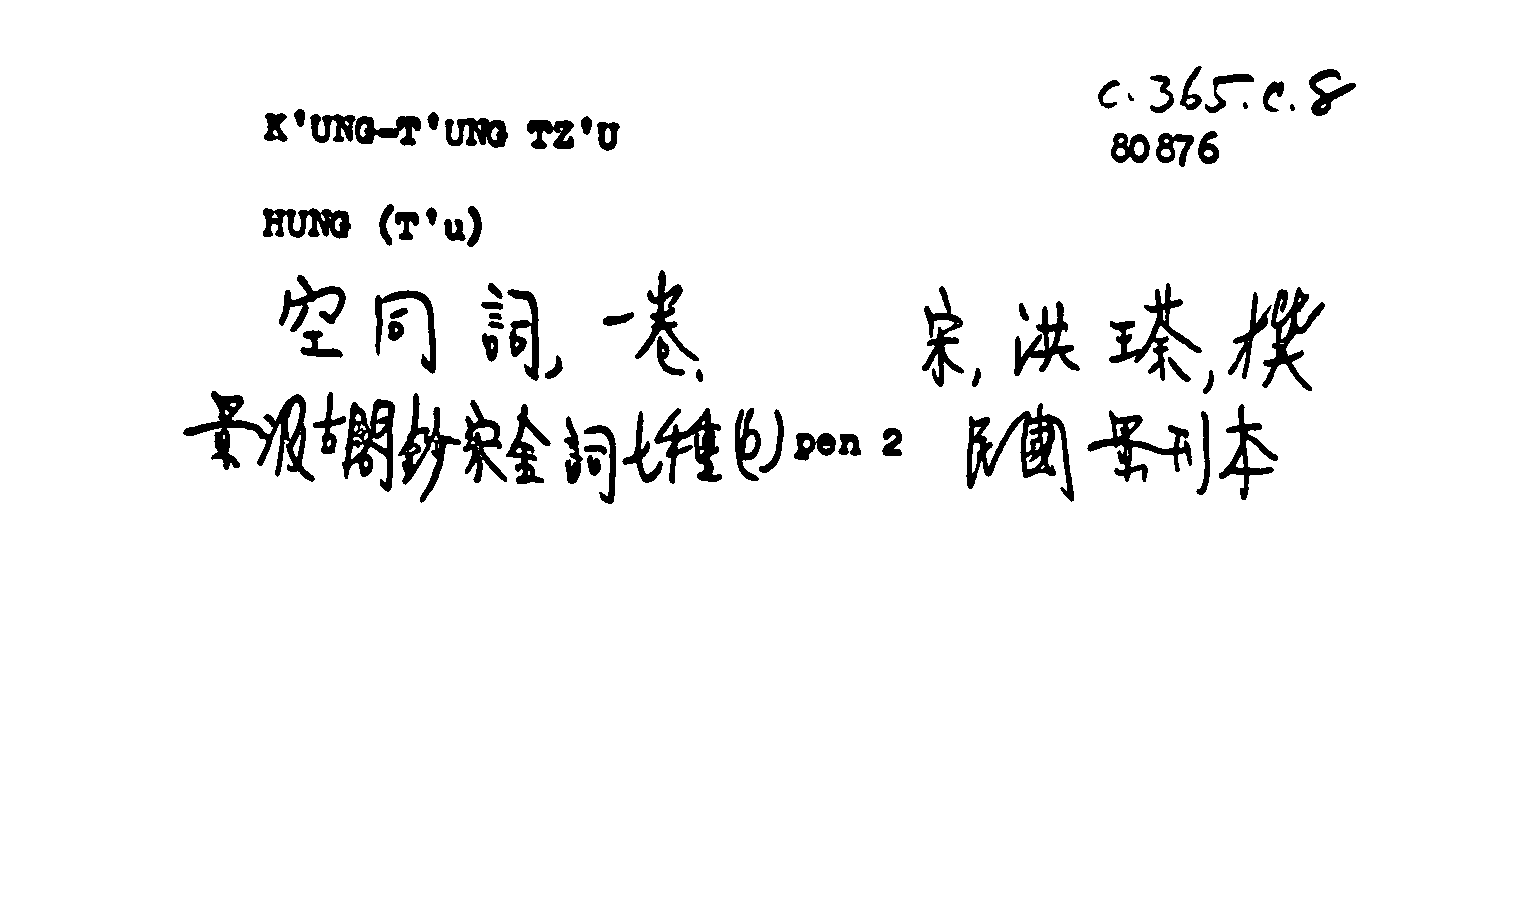 c.365.c.8
K'UNG-T'UNG TZ'U
80876
HUNG (T'u)
空同詞,一卷. 宋,洪瑹,撰
景汲古閣鈔宋金詞七種(6) pen 2 民國景刊本